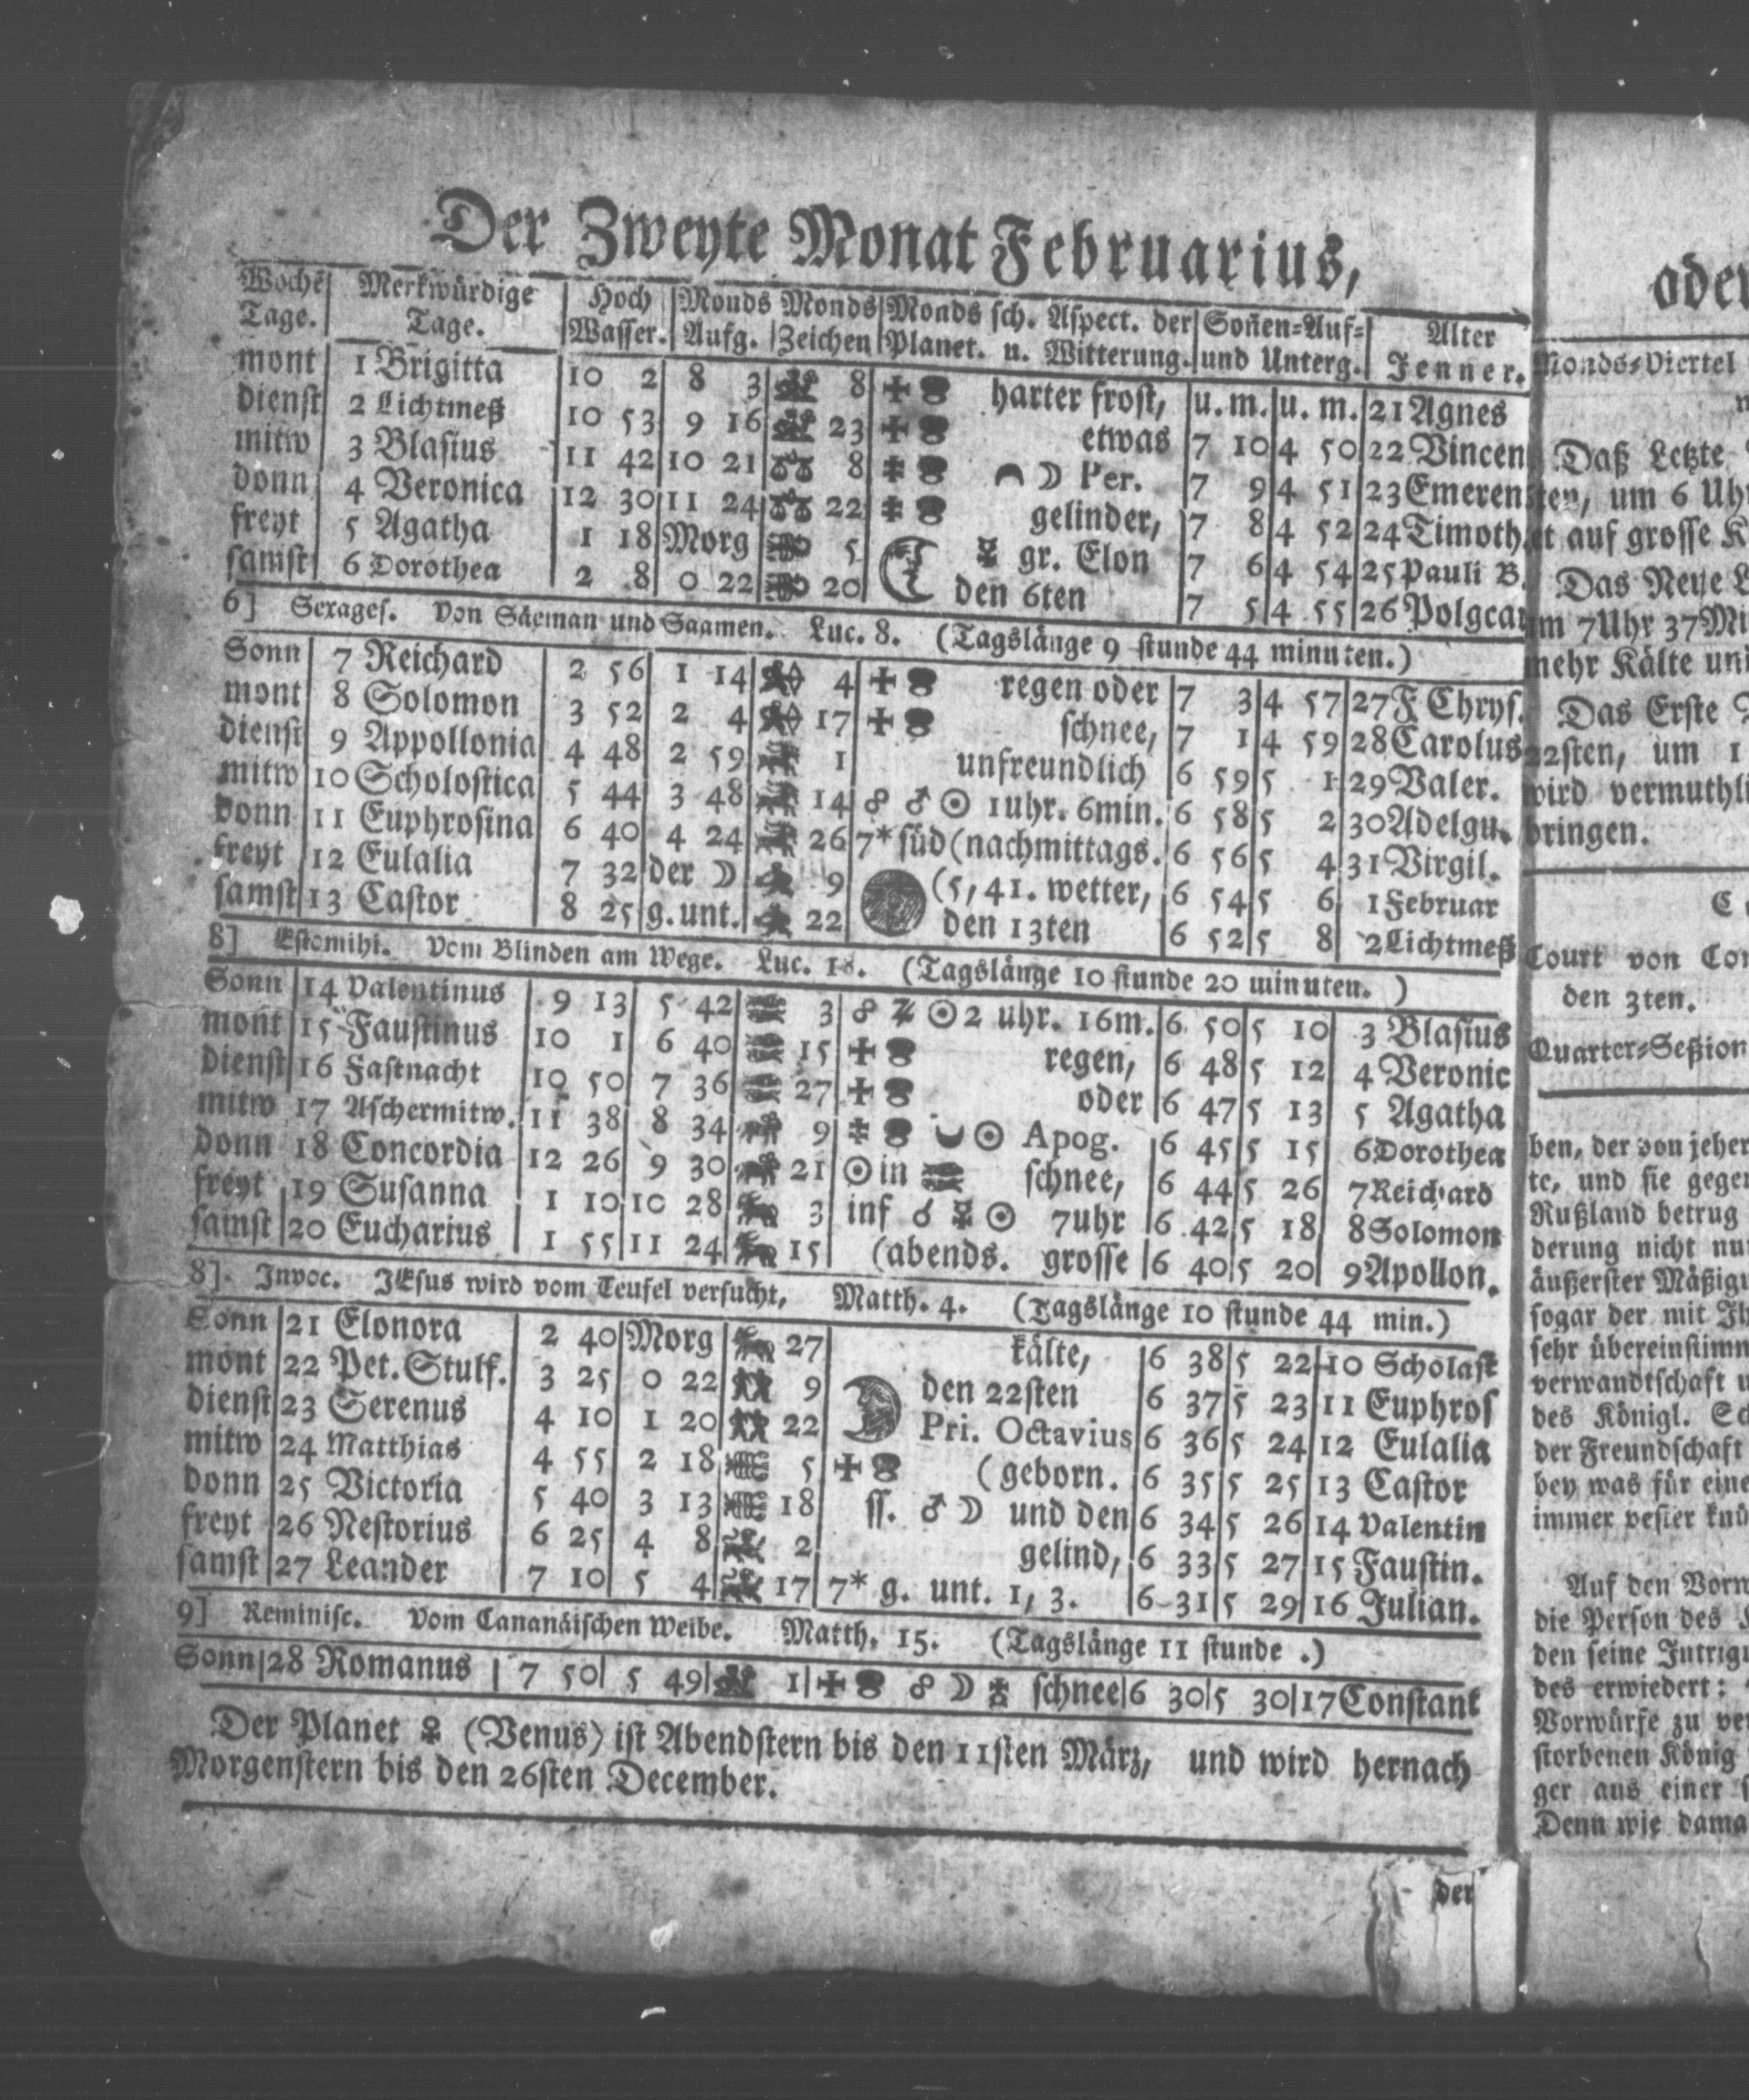 Der Zweyte Monat Februarius,
Woche Tage. | Merkwürdige Tage. | Hoch Wasser. | Monds Aufg. | Monds Zeichen | Monds sch. Aspect. der Planet. u. Witterung. | Soñen=Auf= und Unterg. | Alter Jenner.
mont 1 Brigitta 10 2 8 3 8 harter frost, u. m. u. m. 21 Agnes
dienst 2 Lichtmeß 10 53 9 16 23 etwas 7 10 4 50 22 Vincen
mitw 3 Blasius 11 42 10 21 8 ☽ Per. 7 9 4 51 23 Emeren
donn 4 Veronica 12 30 11 24 22 gelinder, 7 8 4 52 24 Timoth.
freyt 5 Agatha 1 18 Morg 5 ☿ gr. Elon 7 6 4 54 25 Pauli B.
samst 6 Dorothea 2 8 0 22 20 den 6ten 7 5 4 55 26 Polgcar
6] Sexages. Von Säeman und Saamen. Luc. 8. (Tagslänge 9 stunde 44 minuten.)
Sonn 7 Reichard 2 56 1 14 4 regen oder 7 3 4 57 27 F. Chrys.
mont 8 Solomon 3 52 2 4 17 schnee, 7 1 4 59 28 Carolus
dienst 9 Appollonia 4 48 2 59 1 unfreundlich 6 59 5 1 29 Valer.
mitw 10 Scholostica 5 44 3 48 14 ☍ ♂ ☉ 1uhr. 6min. 6 58 5 2 30 Adelgu.
donn 11 Euphrosina 6 40 4 24 26 7* süd (nachmittags. 6 56 5 4 31 Virgil.
freyt 12 Eulalia 7 32 der ☽ 9 (5, 41. wetter, 6 54 5 6 1 Februar
samst 13 Castor 8 25 g. unt. 22 den 13ten 6 52 5 8 2 Lichtmeß
8] Estomihi. Vom Blinden am Wege. Luc. 18. (Tagslänge 10 stunde 20 minuten. )
Sonn 14 Valentinus 9 13 5 42 3 ☍ ♃ ☉ 2 uhr. 16m. 6 50 5 10 3 Blasius
mont 15 Faustinus 10 1 6 40 15 regen, 6 48 5 12 4 Veronic
dienst 16 Fastnacht 10 50 7 36 27 oder 6 47 5 13 5 Agatha
mitw 17 Aschermitw. 11 38 8 34 9 ☉ Apog. 6 45 5 15 6 Dorothea
donn 18 Concordia 12 26 9 30 21 ☉ in schnee, 6 44 5 26 7 Reichard
freyt 19 Susanna 1 10 10 28 3 inf ☌ ☿ ☉ 7uhr 6 42 5 18 8 Solomon
samst 20 Eucharius 1 55 11 24 15 (abends. grosse 6 40 5 20 9 Apollon.
8]. Invoc. JEsus wird vom Teufel versucht, Matth. 4. (Tagslänge 10 stunde 44 min.)
Sonn 21 Elonora 2 40 Morg 27 kälte, 6 38 5 22 10 Scholast
mont 22 Pet. Stulf. 3 25 0 22 9 den 22sten 6 37 5 23 11 Euphros
dienst 23 Serenus 4 10 1 20 22 Pri. Octavius 6 36 5 24 12 Eulalia
mitw 24 Matthias 4 55 2 18 5 (geborn. 6 35 5 25 13 Castor
donn 25 Victoria 5 40 3 13 18 ff. ♂ ☽ und den 6 34 5 26 14 Valentin
freyt 26 Nestorius 6 25 4 8 2 gelind, 6 33 5 27 15 Faustin.
samst 27 Leander 7 10 5 4 17 7* g. unt. 1, 3. 6 31 5 29 16 Julian.
9] Reminisc. Vom Cananäischen Weibe. Matth. 15. (Tagslänge 11 stunde .)
Sonn 28 Romanus 7 50 5 49 1 ☍ ☽ schnee 6 30 5 30 17 Constant
Der Planet ♀ (Venus) ist Abendstern bis den 11sten März, und wird hernach
Morgenstern bis den 26sten December.
der
Monds=Viertel
Daß Letzte
um 6 Uh
auf grosse
Das Neue
7Uhr 37
mehr Kälte
Das Erste
22sten, um 1
wird vermuthli
bringen.
Court von
den 3ten.
Quarter=Seßion
ben, der von jeher
te, und sie gegen
Rußland betrug
derung nicht
äußerster
sogar der mit
sehr übereinstimm
verwandtschaft
des Königl.
der Freundschaft
bey was für eine
immer vester
Auf den
die Person des
den seine
des erwiedert:
Vorwürfe zu
storbenen König
ger aus einer
Denn wie